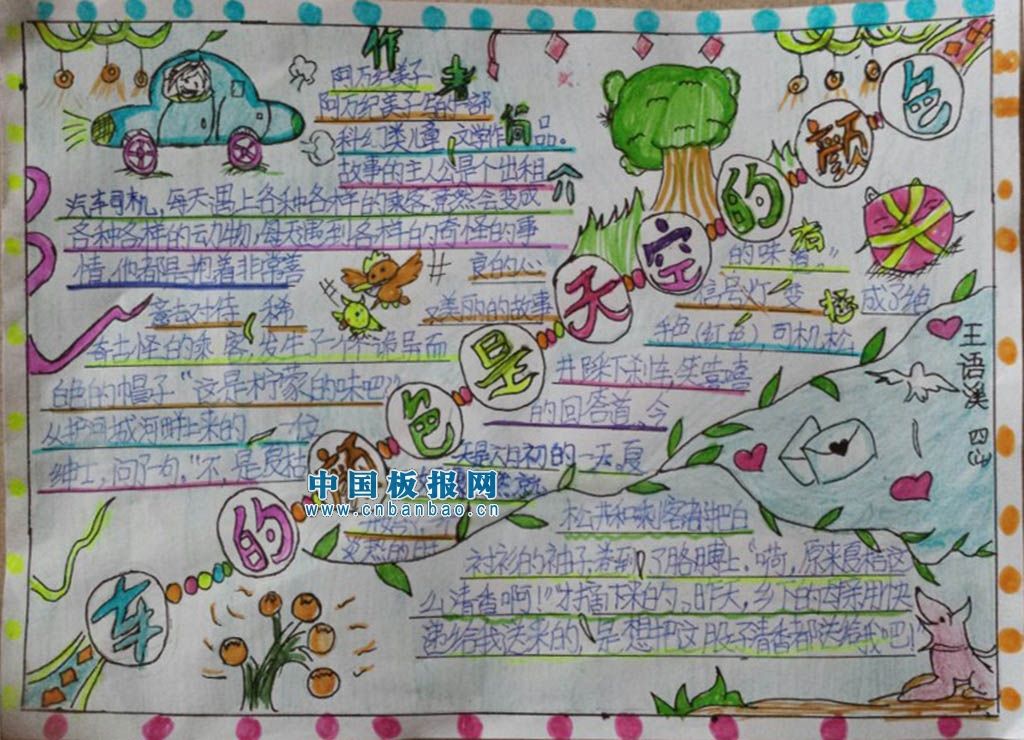 车的颜色是天空的颜色
作者简介
阿万纪美子
阿万纪美子的一部
科幻类儿童文学作品。
故事的主人公是个出租
汽车司机,每天遇上各种各样的乘客竟然会变成
各种各样的动物,每天遇到各样的奇怪的事
情,他都是抱着非常善
良的心
意去对待,稀
美丽的故事
奇古怪的乘客,发生了一个个
白色的帽子“这是柠檬的味吧”
从护河城河畔上来的一位
绅士,问了句。“不,是夏桔
的味道。”
信号灯变成了绝
色(红色)司机松
井踩下刹车,笑嘻嘻
的回答道,今
天是六月初的一天。夏
中国板报网
www.cnbanbao.cn
松井和乘客都把白
衬衫的袖子卷到了胳膊上。“嗬,原来夏桔这
么清香啊!”“才摘下来的。昨天,乡下的母亲用快
递给我送来的,是想把这股子清香都送给我吧!”
王语溪 四(1)